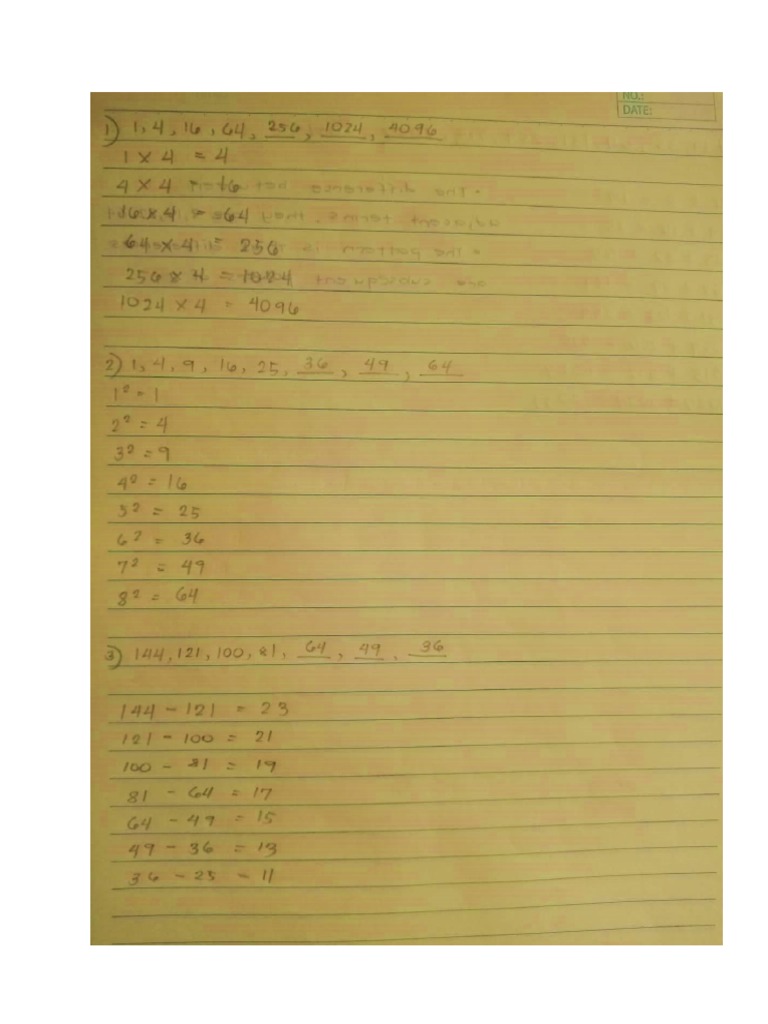 NO.:
DATE:
1) 1, 4, 16, 64, 256, 1024, 4096
1 × 4 = 4
4 × 4 = 16
16 × 4 = 64
64 × 4 = 256
256 × 4 = 1024
1024 × 4 = 4096
2) 1, 4, 9, 16, 25, 36, 49, 64
1² = 1
2² = 4
3² = 9
4² = 16
5² = 25
6² = 36
7² = 49
8² = 64
3) 144, 121, 100, 81, 64, 49, 36
144 - 121 = 23
121 - 100 = 21
100 - 81 = 19
81 - 64 = 17
64 - 49 = 15
49 - 36 = 13
36 - 25 - 11